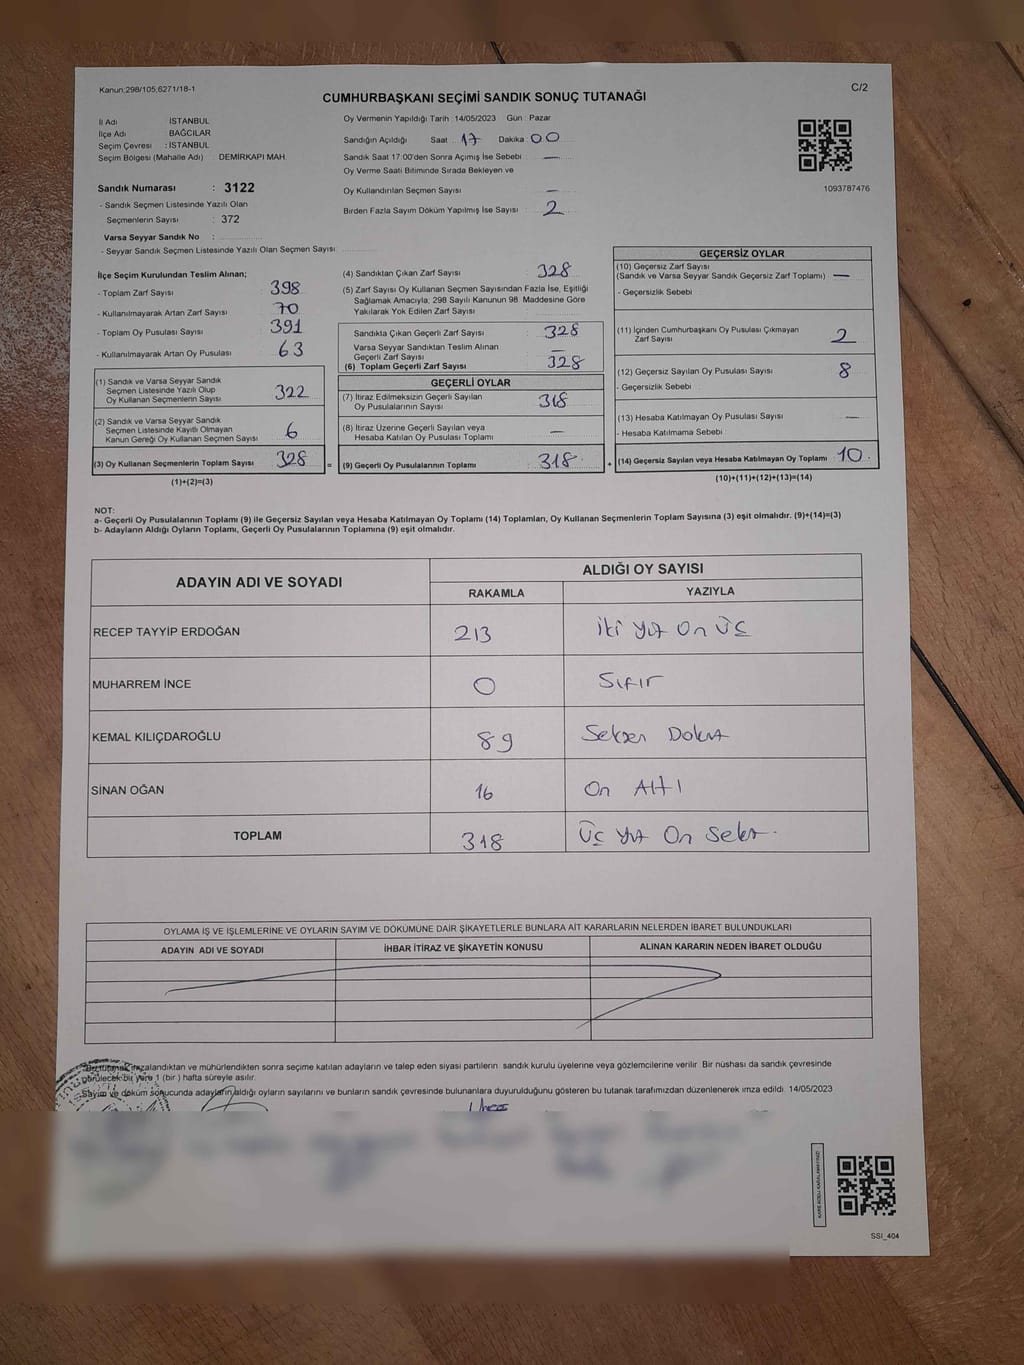 Kanun:298/105;6271/18-1
C/2
CUMHURBAŞKANI SEÇİMİ SANDIK SONUÇ TUTANAĞI
İl Adı İSTANBUL
İlçe Adı BAĞCILAR
Seçim Çevresi : İSTANBUL
Seçim Bölgesi (Mahalle Adı) DEMİRKAPI MAH.
Sandık Numarası : 3122
- Sandık Seçmen Listesinde Yazılı Olan
Seçmenlerin Sayısı : 372
Varsa Seyyar Sandık No :
- Seyyar Sandık Seçmen Listesinde Yazılı Olan Seçmen Sayısı:
Oy Vermenin Yapıldığı Tarih : 14/05/2023 Gün : Pazar
Sandığın Açıldığı Saat : 17 Dakika : 00
Sandık Saat 17:00'den Sonra Açımış İse Sebebi —
Oy Verme Saati Bitiminde Sırada Bekleyen ve
Oy Kullandırılan Seçmen Sayısı —
Birden Fazla Sayım Döküm Yapılmış İse Sayısı : 2
1093787476
İlçe Seçim Kurulundan Teslim Alınan;
- Toplam Zarf Sayısı : 398
- Kullanılmayarak Artan Zarf Sayısı : 70
- Toplam Oy Pusulası Sayısı : 391
- Kullanılmayarak Artan Oy Pusulası : 63
(1) Sandık ve Varsa Seyyar Sandık
Seçmen Listesinde Yazılı Olup
Oy Kullanan Seçmenlerin Sayısı : 322
(2) Sandık ve Varsa Seyyar Sandık
Seçmen Listesinde Kayıtlı Olmayan
Kanun Gereği Oy Kullanan Seçmen Sayısı : 6
(3) Oy Kullanan Seçmenlerin Toplam Sayısı : 328
(1)+(2)=(3)
(4) Sandıktan Çıkan Zarf Sayısı : 328
(5) Zarf Sayısı Oy Kullanan Seçmen Sayısından Fazla İse, Eşitliği
Sağlamak Amacıyla, 298 Sayılı Kanunun 98. Maddesine Göre
Yakılarak Yok Edilen Zarf Sayısı :
Sandıkta Çıkan Geçerli Zarf Sayısı : 328
Varsa Seyyar Sandıktan Teslim Alınan
Geçerli Zarf Sayısı : —
(6) Toplam Geçerli Zarf Sayısı : 328
GEÇERLİ OYLAR
(7) İtiraz Edilmeksizin Geçerli Sayılan
Oy Pusulalarının Sayısı : 318
(8) İtiraz Üzerine Geçerli Sayılan veya
Hesaba Katılan Oy Pusulası Toplamı : —
= (9) Geçerli Oy Pusulalarının Toplamı : 318
GEÇERSİZ OYLAR
(10) Geçersiz Zarf Sayısı
(Sandık ve Varsa Seyyar Sandık Geçersiz Zarf Toplamı) : —
- Geçersizlik Sebebi :
(11) İçinden Cumhurbaşkanı Oy Pusulası Çıkmayan
Zarf Sayısı : 2
(12) Geçersiz Sayılan Oy Pusulası Sayısı : 8
- Geçersizlik Sebebi :
(13) Hesaba Katılmayan Oy Pusulası Sayısı : —
- Hesaba Katılmama Sebebi :
+ (14) Geçersiz Sayılan veya Hesaba Katılmayan Oy Toplamı : 10
(10)+(11)+(12)+(13)=(14)
NOT:
a- Geçerli Oy Pusulalarının Toplamı (9) ile Geçersiz Sayılan veya Hesaba Katılmayan Oy Toplamı (14) Toplamları, Oy Kullanan Seçmenlerin Toplam Sayısına (3) eşit olmalıdır. (9)+(14)=(3)
b- Adayların Aldığı Oyların Toplamı, Geçerli Oy Pusulalarının Toplamına (9) eşit olmalıdır.
ADAYIN ADI VE SOYADI ALDIĞI OY SAYISI
RAKAMLA YAZIYLA
RECEP TAYYİP ERDOĞAN 213 İki Yüz On Üç
MUHARREM İNCE 0 Sıfır
KEMAL KILIÇDAROĞLU 89 Seksen Dokuz
SİNAN OĞAN 16 On Altı
TOPLAM 318 Üç Yüz On Sekiz
OYLAMA İŞ VE İŞLEMLERİNE VE OYLARIN SAYIM VE DÖKÜMÜNE DAİR ŞİKAYETLERLE BUNLARA AİT KARARLARIN NELERDEN İBARET BULUNDUKLARI
ADAYIN ADI VE SOYADI İHBAR İTİRAZ VE ŞİKAYETİN KONUSU ALINAN KARARIN NEDEN İBARET OLDUĞU
Bu tutanak imzalandıktan ve mühürlendikten sonra seçime katılan adayların ve talep eden siyasi partilerin sandık kurulu üyelerine veya gözlemcilerine verilir. Bir nüshası da sandık çevresinde
görülecek bir yere 1 (bir) hafta süreyle asılır.
Sayım ve döküm sonucunda adayların aldığı oyların sayılarını ve bunların sandık çevresinde bulunanlara duyurulduğunu gösteren bu tutanak tarafımızdan düzenlenerek imza edildi. 14/05/2023
KARE KODU KARALAMAYINIZ!
SSI_404